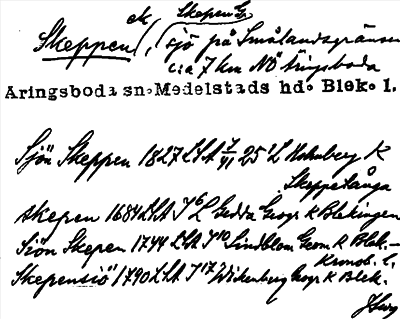 ek Skepen Gr
Skeppen, sjö på Smålandsgränsen
c:a 7 km NÖ Åringsboda
Åringsboda sn. Medelstads hd. Blek. l.
Sjön Skeppen 1827 LHA 7/41 25 L Hahnberg K
Skeppslånga
Skepen 1684 LHA J 6 L Gedda Geogr K Blekingen
Siön Skepen 1744 LHA J 10 Lindblom Geom K Blek.-
Kronob. l.
Skepensiö 1790 LHA J 17 Wickenberg Geogr K Blek.